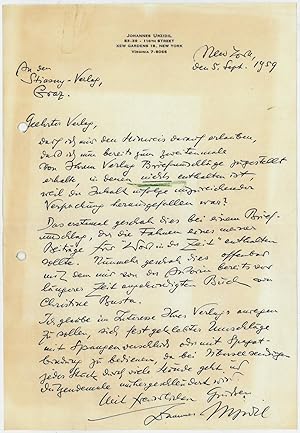 JOHANNES URZIDIL
83-39 - 116TH STREET
KEW GARDENS 18, NEW YORK
VIRGINIA 7-5065
New York,
den 5. Sept. 1959
An den
Stiasny-Verlag,
Graz.
Geehrter Verlag,
darf ich mir den Hinweis darauf erlauben,
dass ich nun bereits zum zweitenmale
von Ihrem Verlag Briefumschläge zugestellt
erhalte in denen nichts enthalten ist,
weil der Inhalt infolge unzureichender
Verpackung herausgefallen war?
Das erstemal geschah dies bei einem Brief-
umschlag, der die Fahnen eines meiner
Beiträge für "Wort in der Zeit" enthalten
sollte. Nunmehr geschah dies offenbar
mit dem mir von der Autorin bereits vor
längerer Zeit angekündigten Buch von
Christine Busta.
Ich glaube im Interesse Ihres Verlags anregen
zu sollen, sich fest geklebter Umschläge
mit Spangenverschluss oder mit Spagat-
bindung zu bedienen, da bei Überseesendungen
jedes Stück durch viele Hände geht und
dutzendemale umhergeschleudert wird.
Mit herzlichen Grüssen
Johannes Urzidil